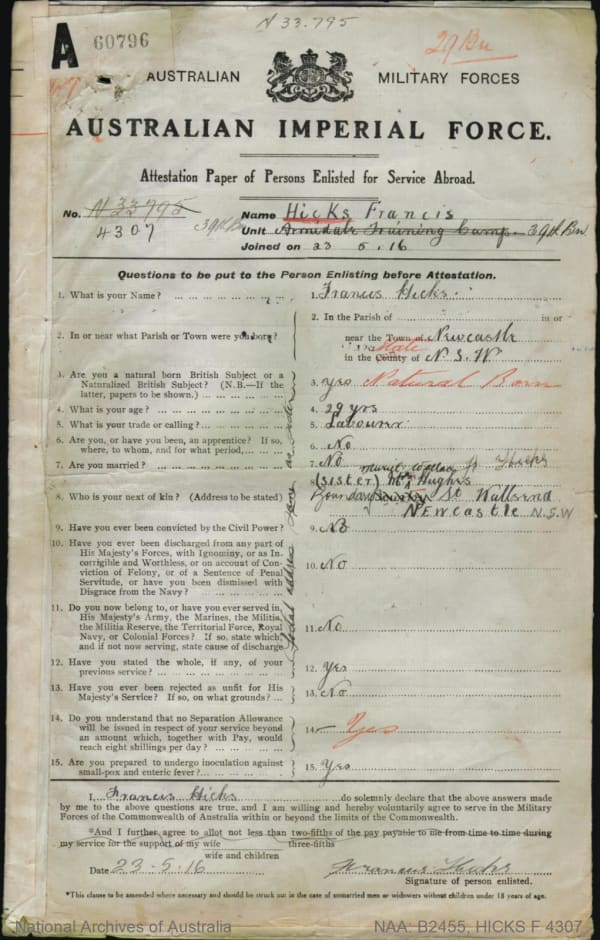 N 33.795
A 60796
29 Bn
AUSTRALIAN MILITARY FORCES
AUSTRALIAN IMPERIAL FORCE.
Attestation Paper of Persons Enlisted for Service Abroad.
No. N 33795
4307 39th Bn
Name Hicks Francis
Unit Armidale Training Camp. 39th Bn
Joined on 23 5.16
Questions to be put to the Person Enlisting before Attestation.
1. What is your Name? 1. Francis Hicks.
2. In or near what Parish or Town were you born? 2. In the Parish of in or
near the Town of Newcastle
State
in the County of N.S.W
3. Are you a natural born British Subject or a
Naturalized British Subject? (N.B.—If the
latter, papers to be shown.) 3. Yes Natural Born
4. What is your age? 4. 29 yrs
5. What is your trade or calling? 5. Labourer
6. Are you, or have you been, an apprentice? If so,
where, to whom, and for what period, 6. No
7. Are you married? 7. No
8. Who is your next of kin? (Address to be stated) Hicks
(sister) Mrs Hughes
Boundary St Wallsend
Newcastle N.S.W
Postal address same as order
9. Have you ever been convicted by the Civil Power? 9. No
10. Have you ever been discharged from any part of
His Majesty's Forces, with Ignominy, or as In-
corrigible and Worthless, or on account of Con-
viction of Felony, or of a Sentence of Penal
Servitude, or have you been dismissed with
Disgrace from the Navy? 10. No
11. Do you now belong to, or have you ever served in,
His Majesty's Army, the Marines, the Militia,
the Militia Reserve, the Territorial Force, Royal
Navy, or Colonial Forces? If so, state which,
and if not now serving, state cause of discharge 11. No
12. Have you stated the whole, if any, of your
previous service? 12. Yes
13. Have you ever been rejected as unfit for His
Majesty's Service? If so, on what grounds? 13. No
14. Do you understand that no Separation Allowance
will be issued in respect of your service beyond
an amount which, together with Pay, would
reach eight shillings per day? 14. Yes
15. Are you prepared to undergo inoculation against
small-pox and enteric fever? 15. Yes
I, Francis Hicks do solemnly declare that the above answers made
by me to the above questions are true, and I am willing and hereby voluntarily agree to serve in the Military
Forces of the Commonwealth of Australia within or beyond the limits of the Commonwealth.
*And I further agree to allot not less than two-fifths of the pay payable to me from time to time during
three-fifths
my service for the support of my wife
wife and children
Date 23-5-16 Francis Hicks
Signature of person enlisted.
*This clause to be amended where necessary and should be struck out in the case of unmarried men or widowers without children under 18 years of age.
National Archives of Australia NAA: B2455, HICKS F 4307